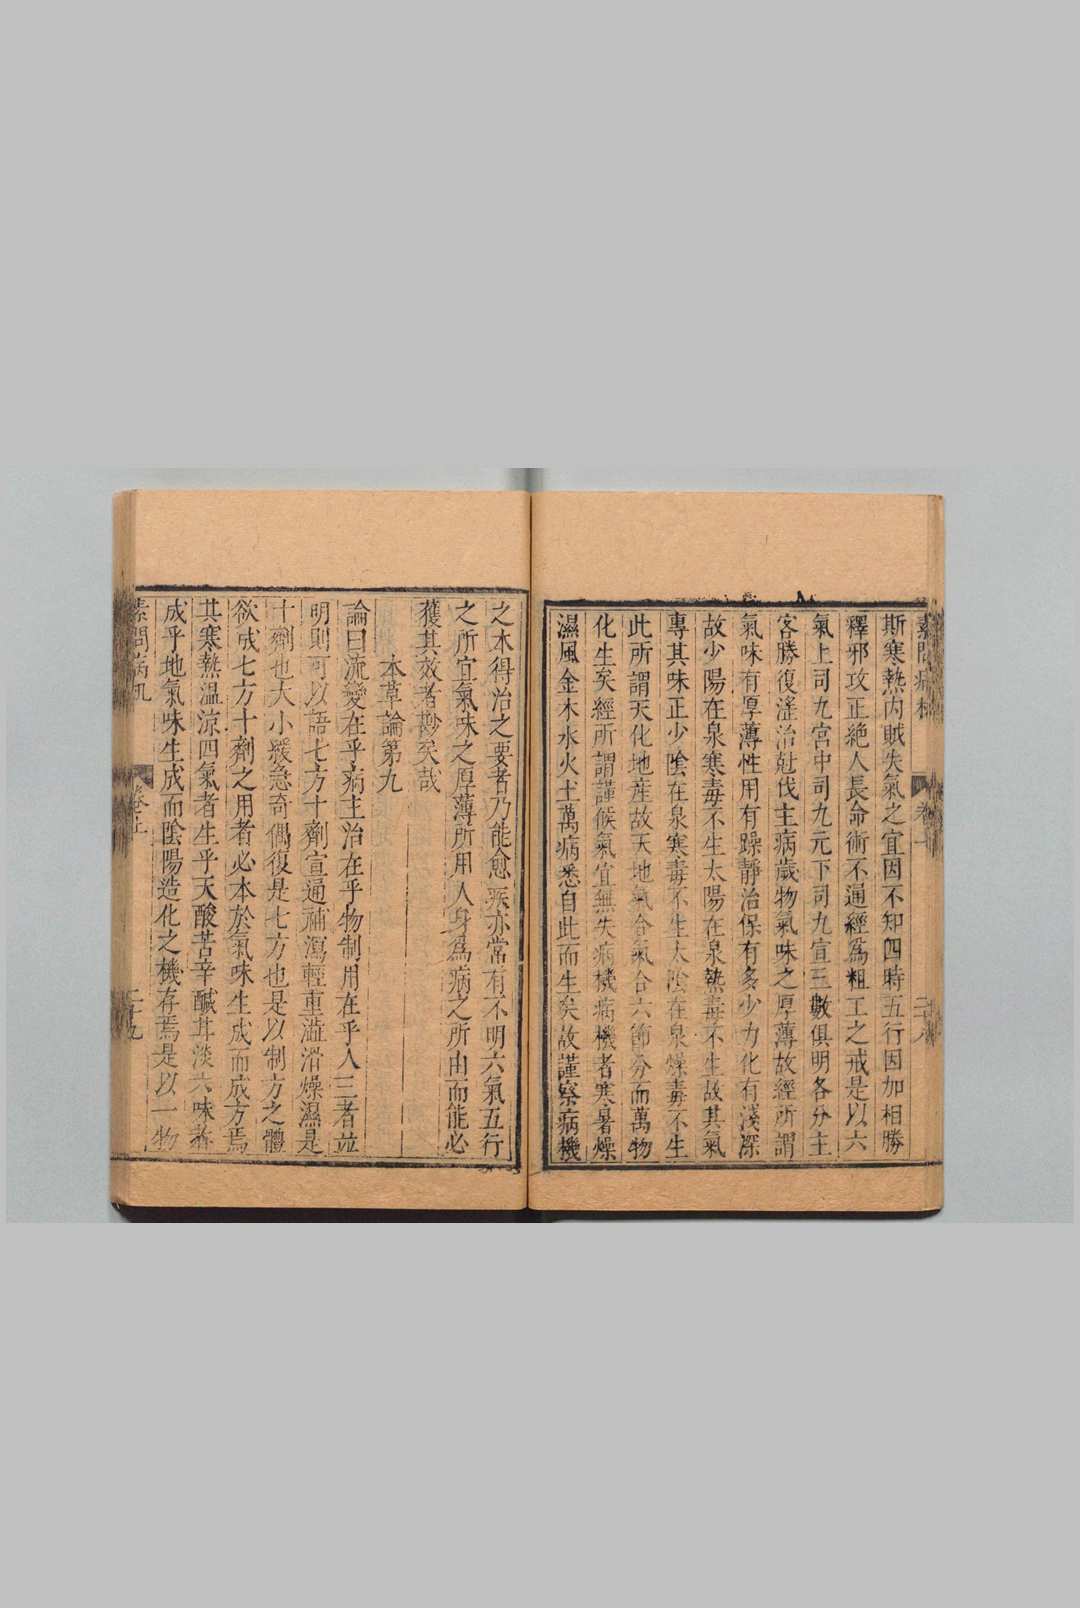 斯寒熱內賊失氣之宜因不知四時五行因加相勝
釋邪攻正絶人長命術不通經爲粗工之戒是以六
氣上司九宮中司九元下司九宣三數俱明各分主
客勝復淫治尅伐主病歲物氣味之厚薄故經所謂
氣味有厚薄性用有躁靜治保有多少力化有淺深
故少陽在泉寒毒不生太陽在泉熱毒不生故其氣
專其味正少陰在泉寒毒不生太陰在泉燥毒不生
此所謂天化地産故天地氣合氣合六節分而萬物
化生矣經所謂謹候氣宜無失病機病機者寒暑燥
濕風金木水火土萬病悉自此而生矣故謹察病機
之本得治之要者乃能愈疾亦常有不明六氣五行
之所宜氣味之厚薄所用人身爲病之所由而能必
獲其效者尠矣哉
本草論第九
論曰流變在乎病主治在乎物制用在乎人三者並
明則可以語七方十劑宣通補瀉輕重澁滑燥濕是
十劑也大小緩急奇偶復是七方也是以制方之體
欲成七方十劑之用者必本於氣味生成而成方焉
其寒熱溫涼四氣者生乎天酸苦辛鹹甘淡六味者
成乎地氣味生成而陰陽造化之機存焉是以一物
素問病机
二十九